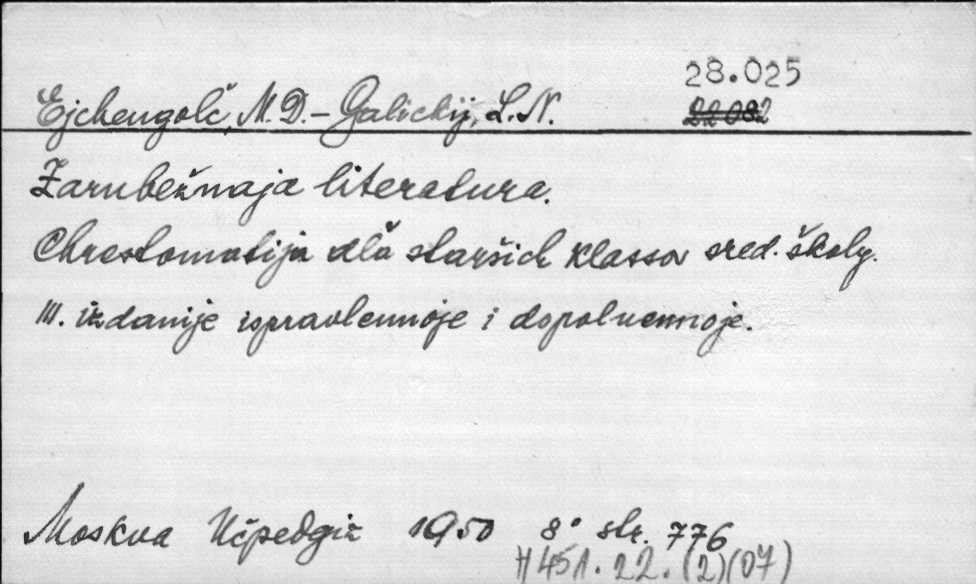 28.025
Ejchengolč, M. D. – Galickij, L. N. 22082
Zarubežnaja literatura.
Chrestomatija dĺa staršich klassov sred. školy.
III. izdanije ispravlennoje i dopolnennoje.
Moskva Učpedgiz 1950 8° str. 776
H 451. 22. (2)(07)